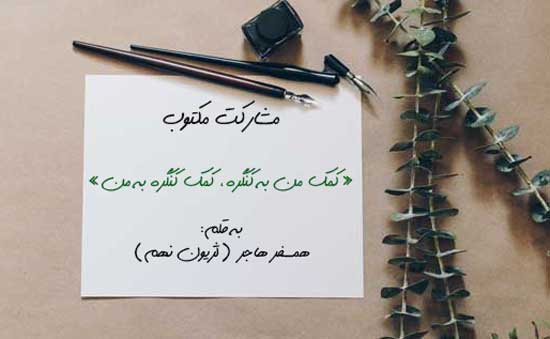 مشارکت مکتوب
«کمک من به کنگره، کمک کنگره به من»
به قلم:
همسفر هاجر (لژیون نهم)